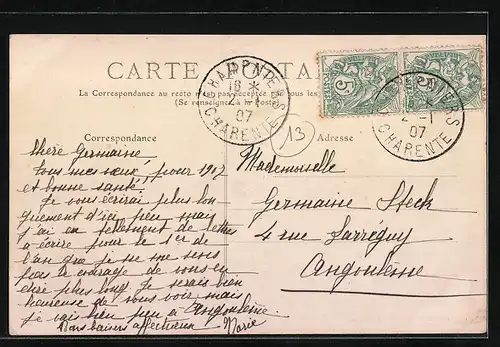 CARTE POSTALE
La Correspondance au recto n'est pas acceptée par tous les
(Se renseigner à la Poste)
CHAMPNIERS
18 *
2 -1
07
CHARENTE
5
CHAMPNIERS
2 -1
07
CHARENTE
13
Correspondance
Adresse
Chère Germaine
Tous mes voeux, pour 1907
et bonne santé.
Je vous écrirai plus lon-
guement d'ici peu, mais
j'ai eu tellement de lettres
à écrire pour le 1er de
l'an que je ne me sens
pas le courage de vous en
dire plus long. Je serais bien
heureuse de vous voir mais
je vais bien peu à Angoulême.
Bons baisers affectueux
Marie
Mademoiselle
Germaine Steck
4 rue Larréguy
Angoulême